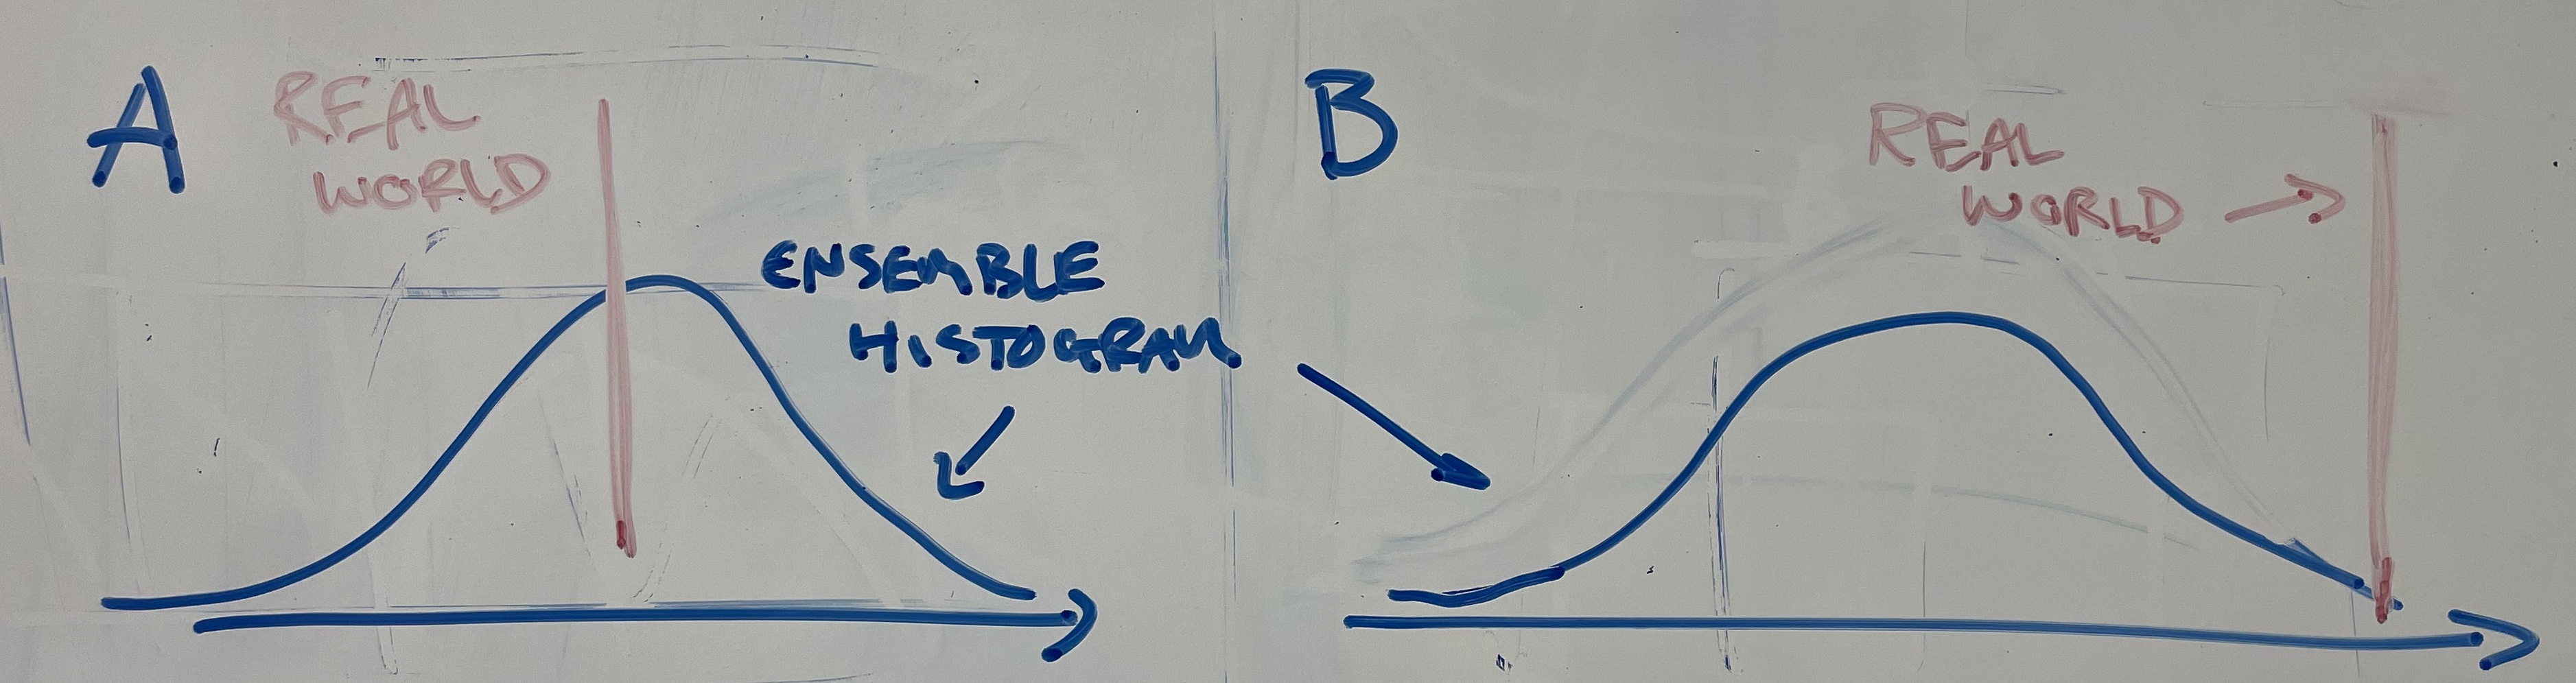 A
REAL
WORLD
ENSEMBLE
HISTOGRAM
B
REAL
WORLD